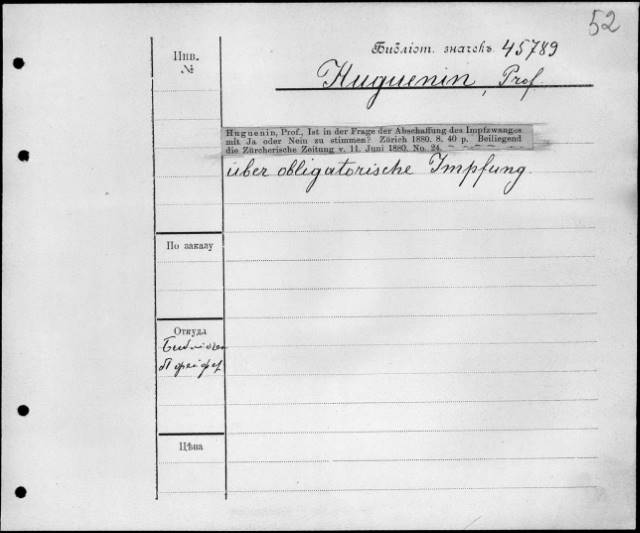 52
Инв.
№
Библіот. значекъ 45789
Huguenin, Prof.
Huguenin, Prof., Ist in der Frage der Abschaffung des Impfzwanges
mit Ja oder Nein zu stimmen? Zürich 1880. 8. 40 p. Beiliegend
die Zürcherische Zeitung v. 11. Juni 1880. No. 24.
über obligatorische Impfung.
По заказу
Откуда
Цѣна